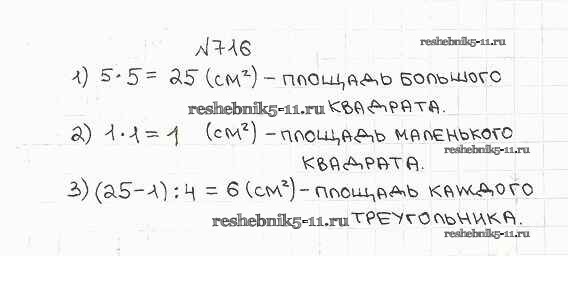 №716
reshebnik5-11.ru
1) 5·5 = 25 (см²) – площадь большого
reshebnik5-11.ru квадрата.
2) 1·1 = 1 (см²) – площадь маленького
reshebnik5-11.ru
квадрата.
3) (25-1):4 = 6 (см²) – площадь каждого
reshebnik5-11.ru треугольника.
reshebnik5-11.ru